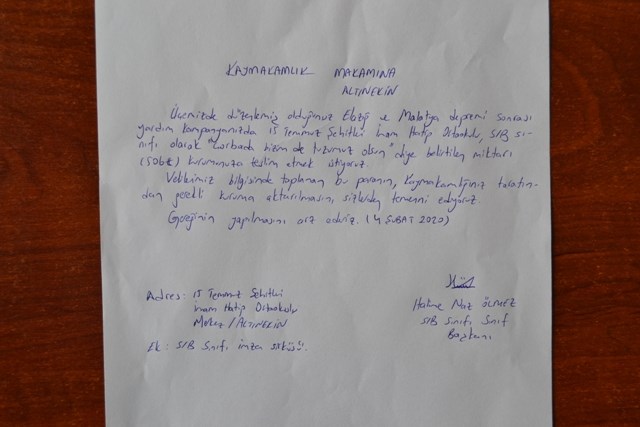 KAYMAKAMLIK MAKAMINA
ALTINEKİN
İlçemizde düzenlemiş olduğunuz Elazığ ve Malatya depremi sonrası
yardım kampanyanızda 15 Temmuz Şehitleri İmam Hatip Ortaokulu, 5/B sı-
nıfı olarak "Çorbada bizim de tuzumuz olsun" diye belirtilen miktarı
kurumunuza teslim etmek istiyoruz.
Velilerimiz bilgisinde toplanan bu paranın, Kaymakamlığınız tarafın-
dan gerekli kuruma aktarılmasını, sizlerden temenni ediyoruz.
Gereğinin yapılmasını arz ederiz. (4 ŞUBAT 2020)
Adres: 15 Temmuz Şehitleri
İmam Hatip Ortaokulu
Merkez/ALTINEKİN
Ek: 5/B Sınıfı imza sirküsü.
Halime Naz ÖLMEZ
5/B Sınıfı Sınıf
Başkanı